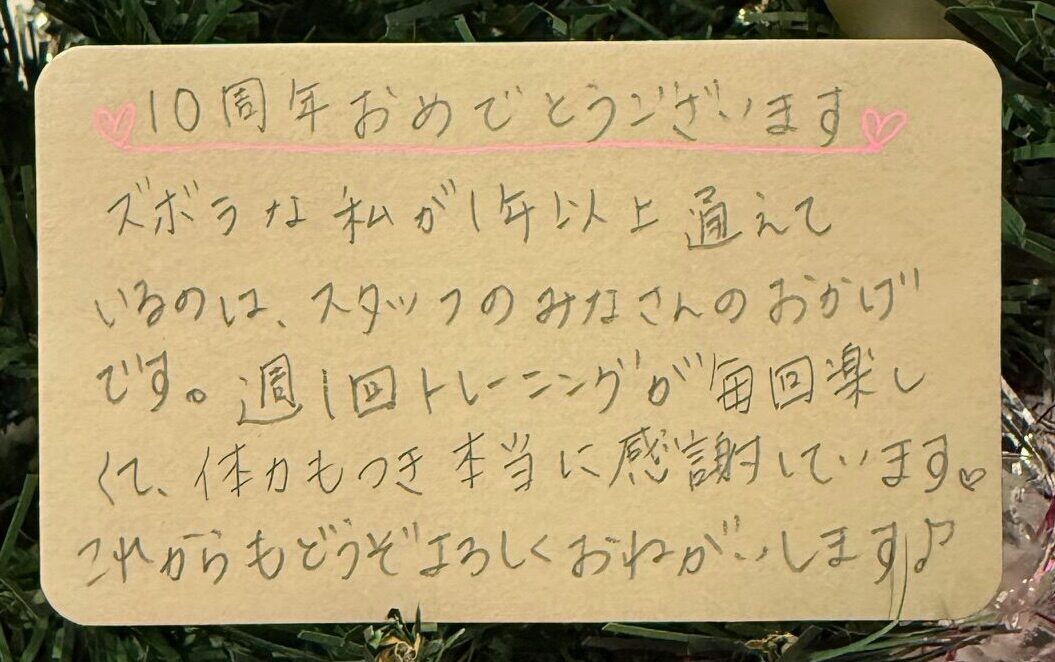 ♡10周年おめでとうございます♡
ズボラな私が1年以上通えて
いるのは、スタッフのみなさんのおかげ
です。週1回トレーニングが毎回楽し
くて、体力もつき本当に感謝しています♡
これからもどうぞよろしくおねがいします♪